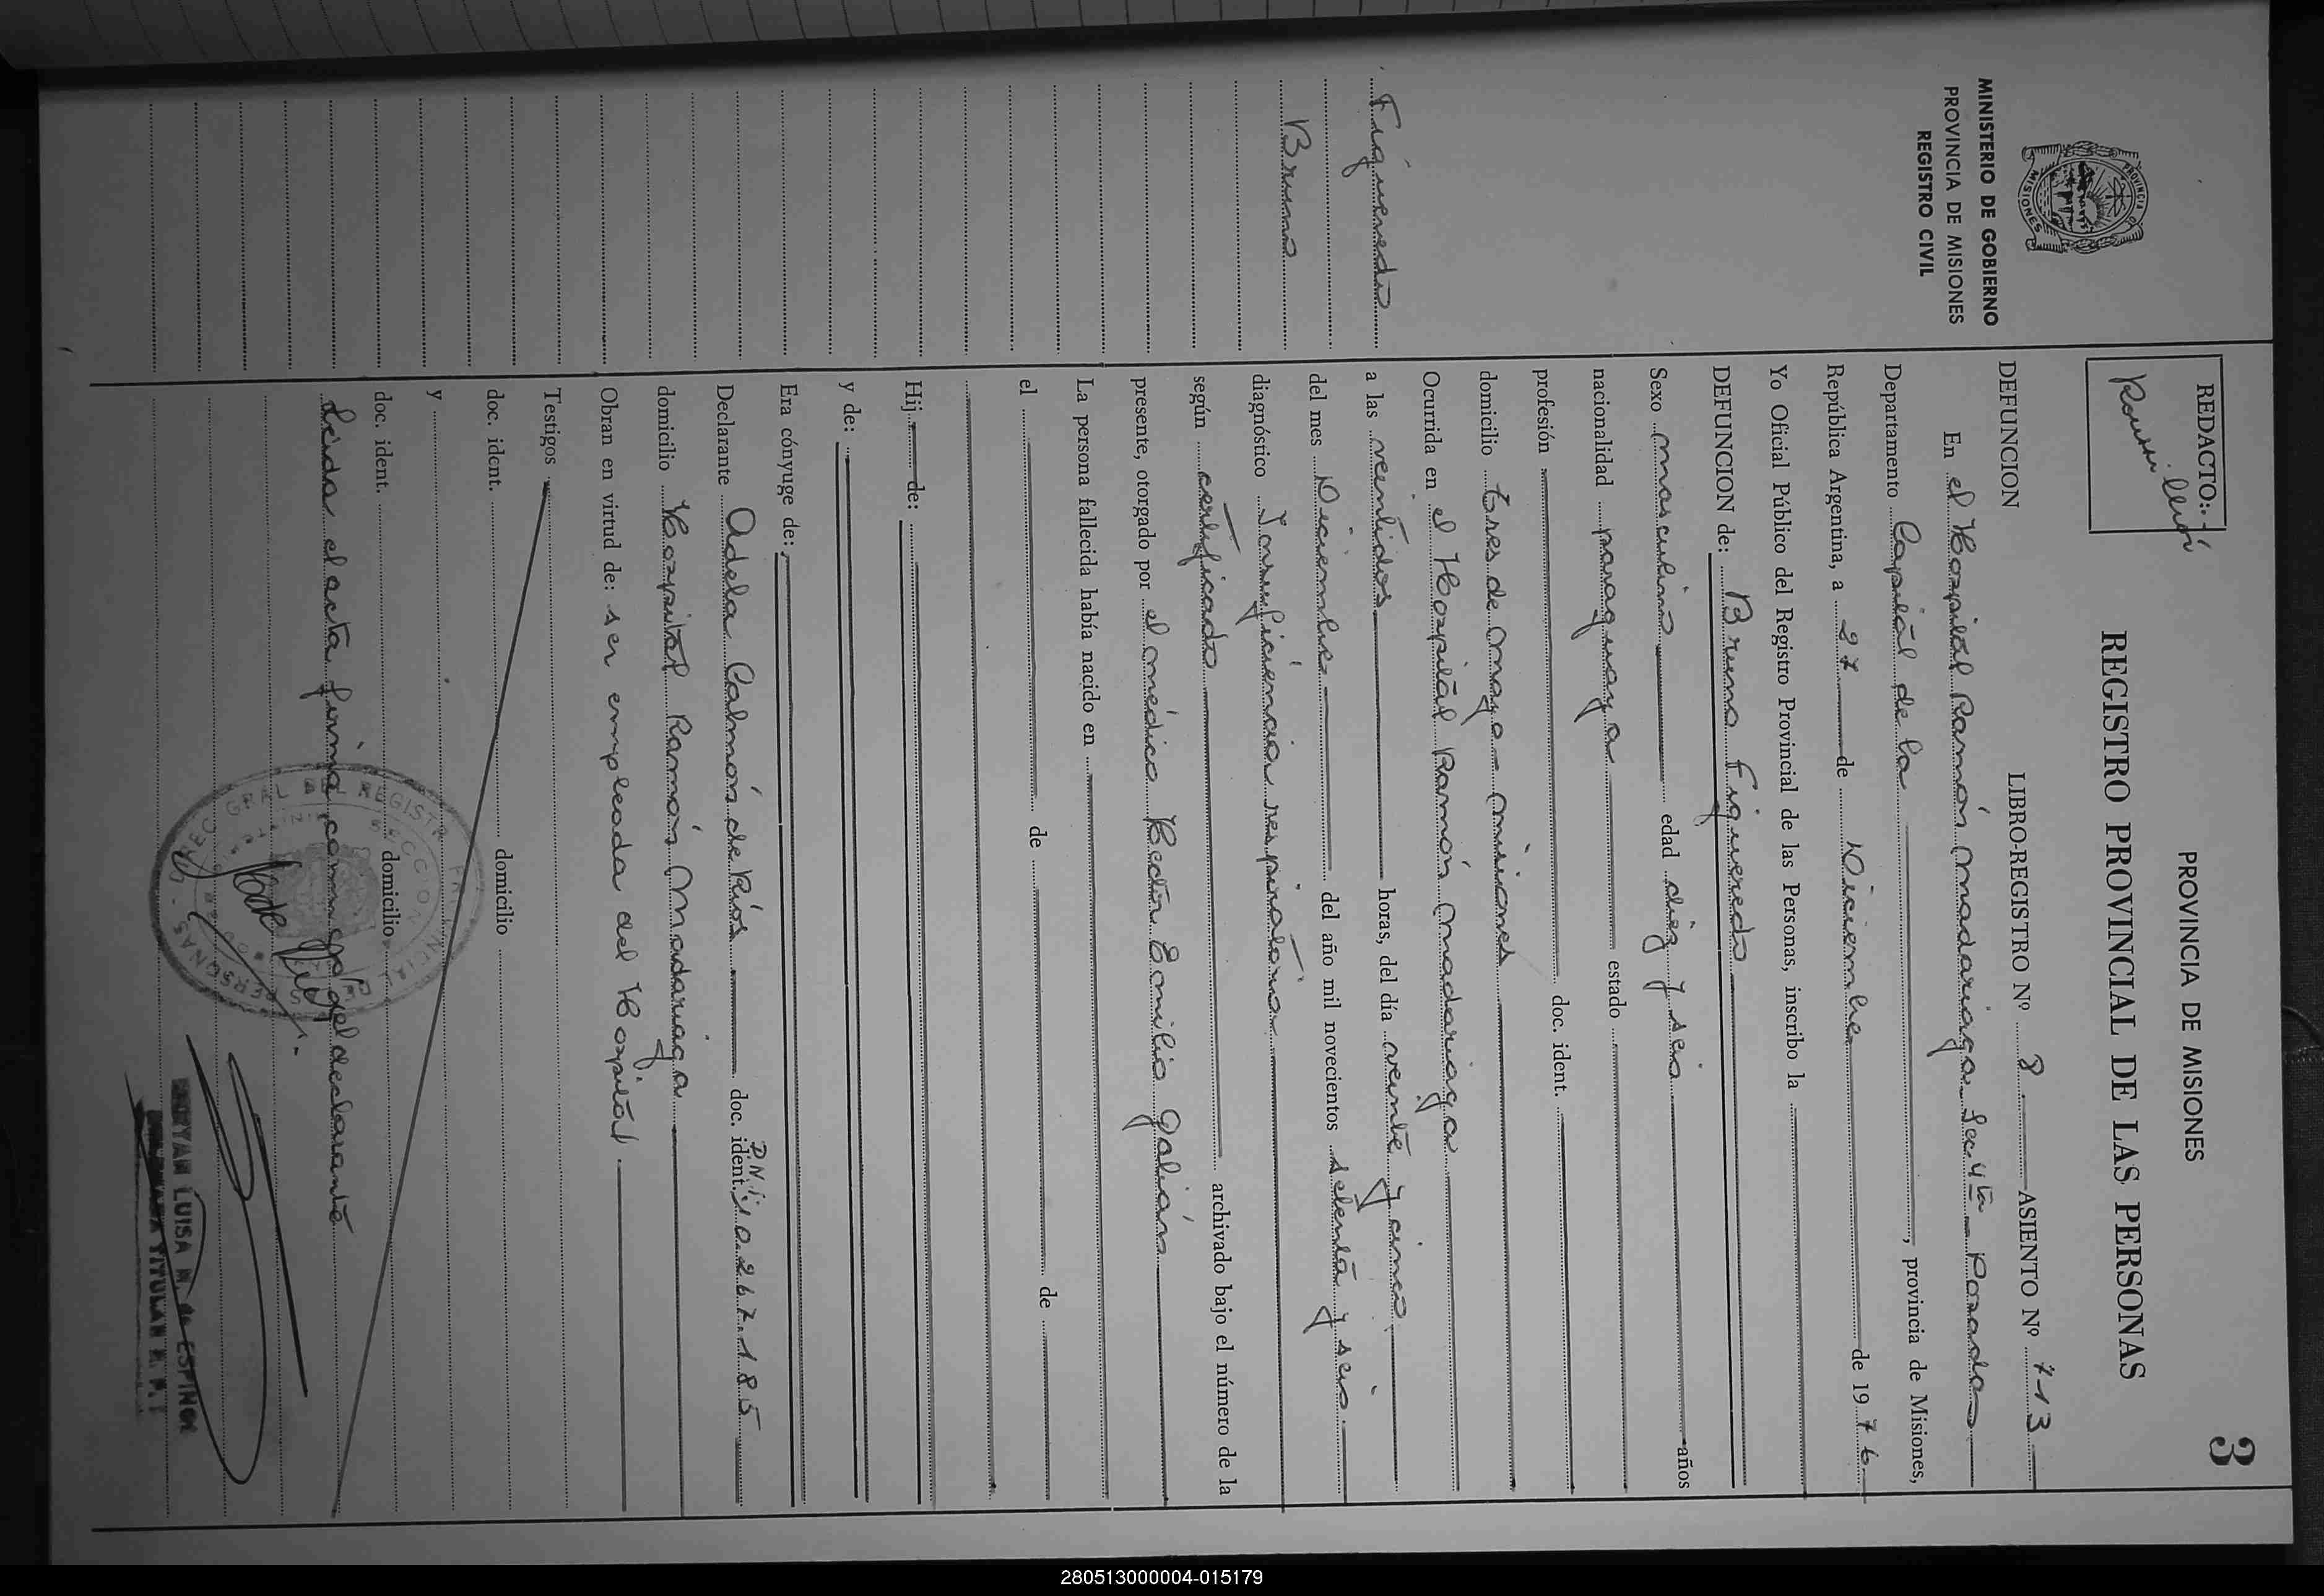 3
PROVINCIA DE MISIONES
REGISTRO PROVINCIAL DE LAS PERSONAS
REDACTO:
PROVINCIA
MISIONES
MINISTERIO DE GOBIERNO
PROVINCIA DE MISIONES
REGISTRO CIVIL
Figueredo
Bruno
DEFUNCION
LIBRO-REGISTRO Nº 8 ASIENTO Nº 713
En el Hospital Ramón Madariaga Sec 4ta - Posadas
Departamento Capital de la , provincia de Misiones,
República Argentina, a 27 de Diciembre de 1976
Yo Oficial Público del Registro Provincial de las Personas, inscribo la
DEFUNCION de: Bruno Figueredo
Sexo masculino edad diez y seis años
nacionalidad paraguaya estado
profesión doc. ident.
domicilio tres de Mayo - Misiones
Ocurrida en el Hospital Ramón Madariaga
a las veintidos horas, del día veinte y cinco
del mes Diciembre del año mil novecientos setenta y seis
diagnóstico Insuficiencia respiratoria
según certificado archivado bajo el número de la
presente, otorgado por el médico Hector Emilio Galian
La persona fallecida había nacido en
el de de
Hij de:
y de:
Era cónyuge de:
Declarante Adela Calmón de Ríos doc. ident. D.N.I. 10.267.185
domicilio Hospital Ramón Madariaga
Obran en virtud de: ser empleada del Hospital.
Testigos
doc. ident. domicilio
y
doc. ident. domicilio
Leída el acta firma conmigo el declarante
LUISA M. de ESPINO
TITULAR
280513000004-015179